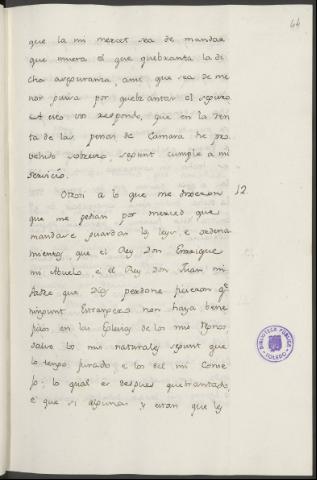 44
que la mi merced sea de mandar
que muera el que quebranta la di
cha aseguranza, ante que sea de me
nor pena por quebrantar el seguro
A esto vos respondo, que en la ren
ta de las penas de Camara he pro
vehido sobrello, segunt cumple a mi
servicio.
Otrosi a lo que me dixeron 12.
que me pedian por merced que
mandase guardar las leyes e ordena
mientos, que el Rey Don Enrrique
mi Abuelo, e el Rey Don Juan mi
Padre que Dios perdone ficieron qe
ningunt Estrangero non haya bene
ficio en las Eglesias de los mis Regnos
salvo los mis naturales segunt que
lo tengo jurado e los del mi Conse
jo; lo qual es despues quebrantado,
e que si algunas y estan que les
BIBLIOTECA PÚBLICA
TOLEDO